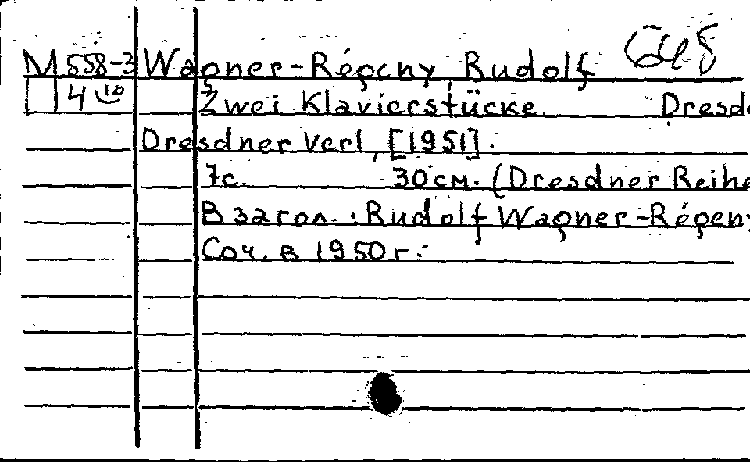 M 558-3 Wagner-Régeny, Rudolf
4 Zwei Klavierstücke. Dresd
Dresdner Verl., [1951].
7с. 30см. (Dresdner Reihe
В загол.: Rudolf Wagner-Régeny
Соч. в 1950 г.